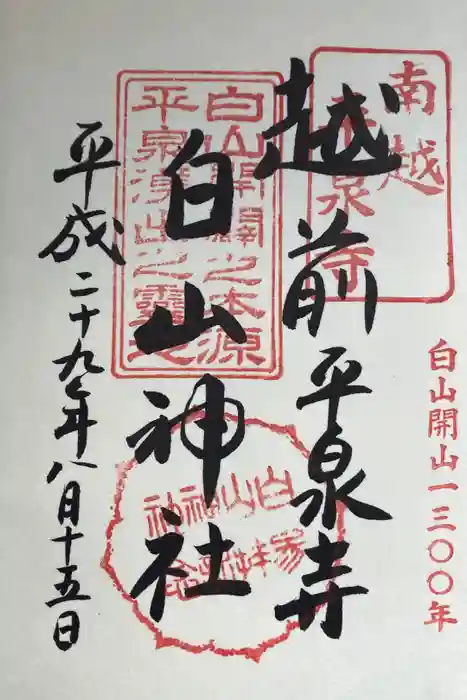 白山開山一三〇〇年
越前平泉寺
白山神社
平成二十九年八月十五日
南越
平泉寺
白山開闢之本源
平泉湧出之靈地
白山神社